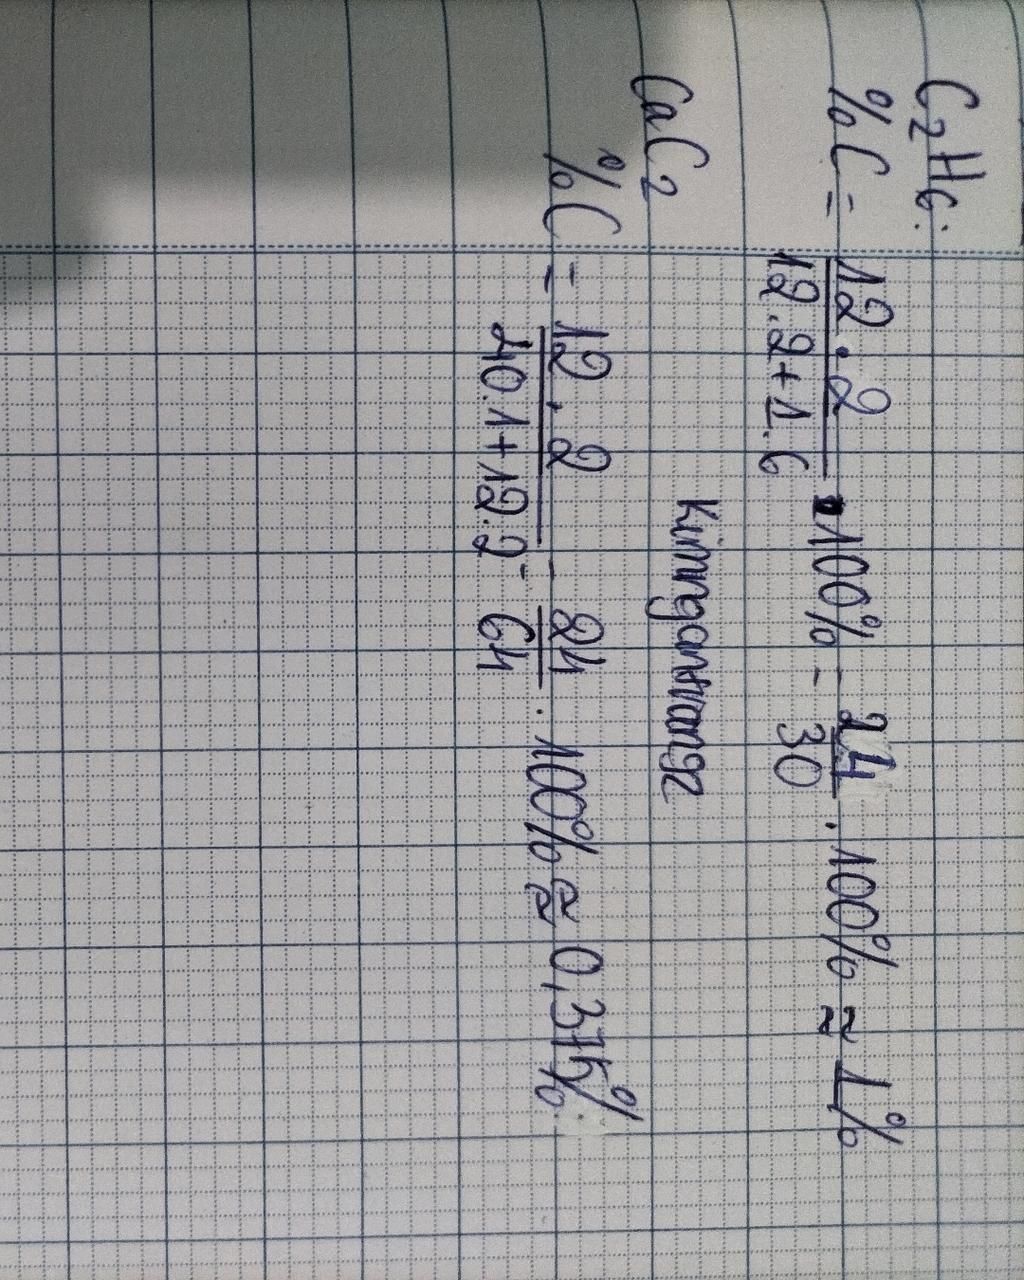 C₂H₆:
%C = 12.2 / 12.2+1.6 .100% = 24 / 30 .100% ≈ 1%
Kimnganhhangz
CaC₂
%C = 12.2 / 40.1+12.2 = 24 / 64 . 100% ≈ 0,375%